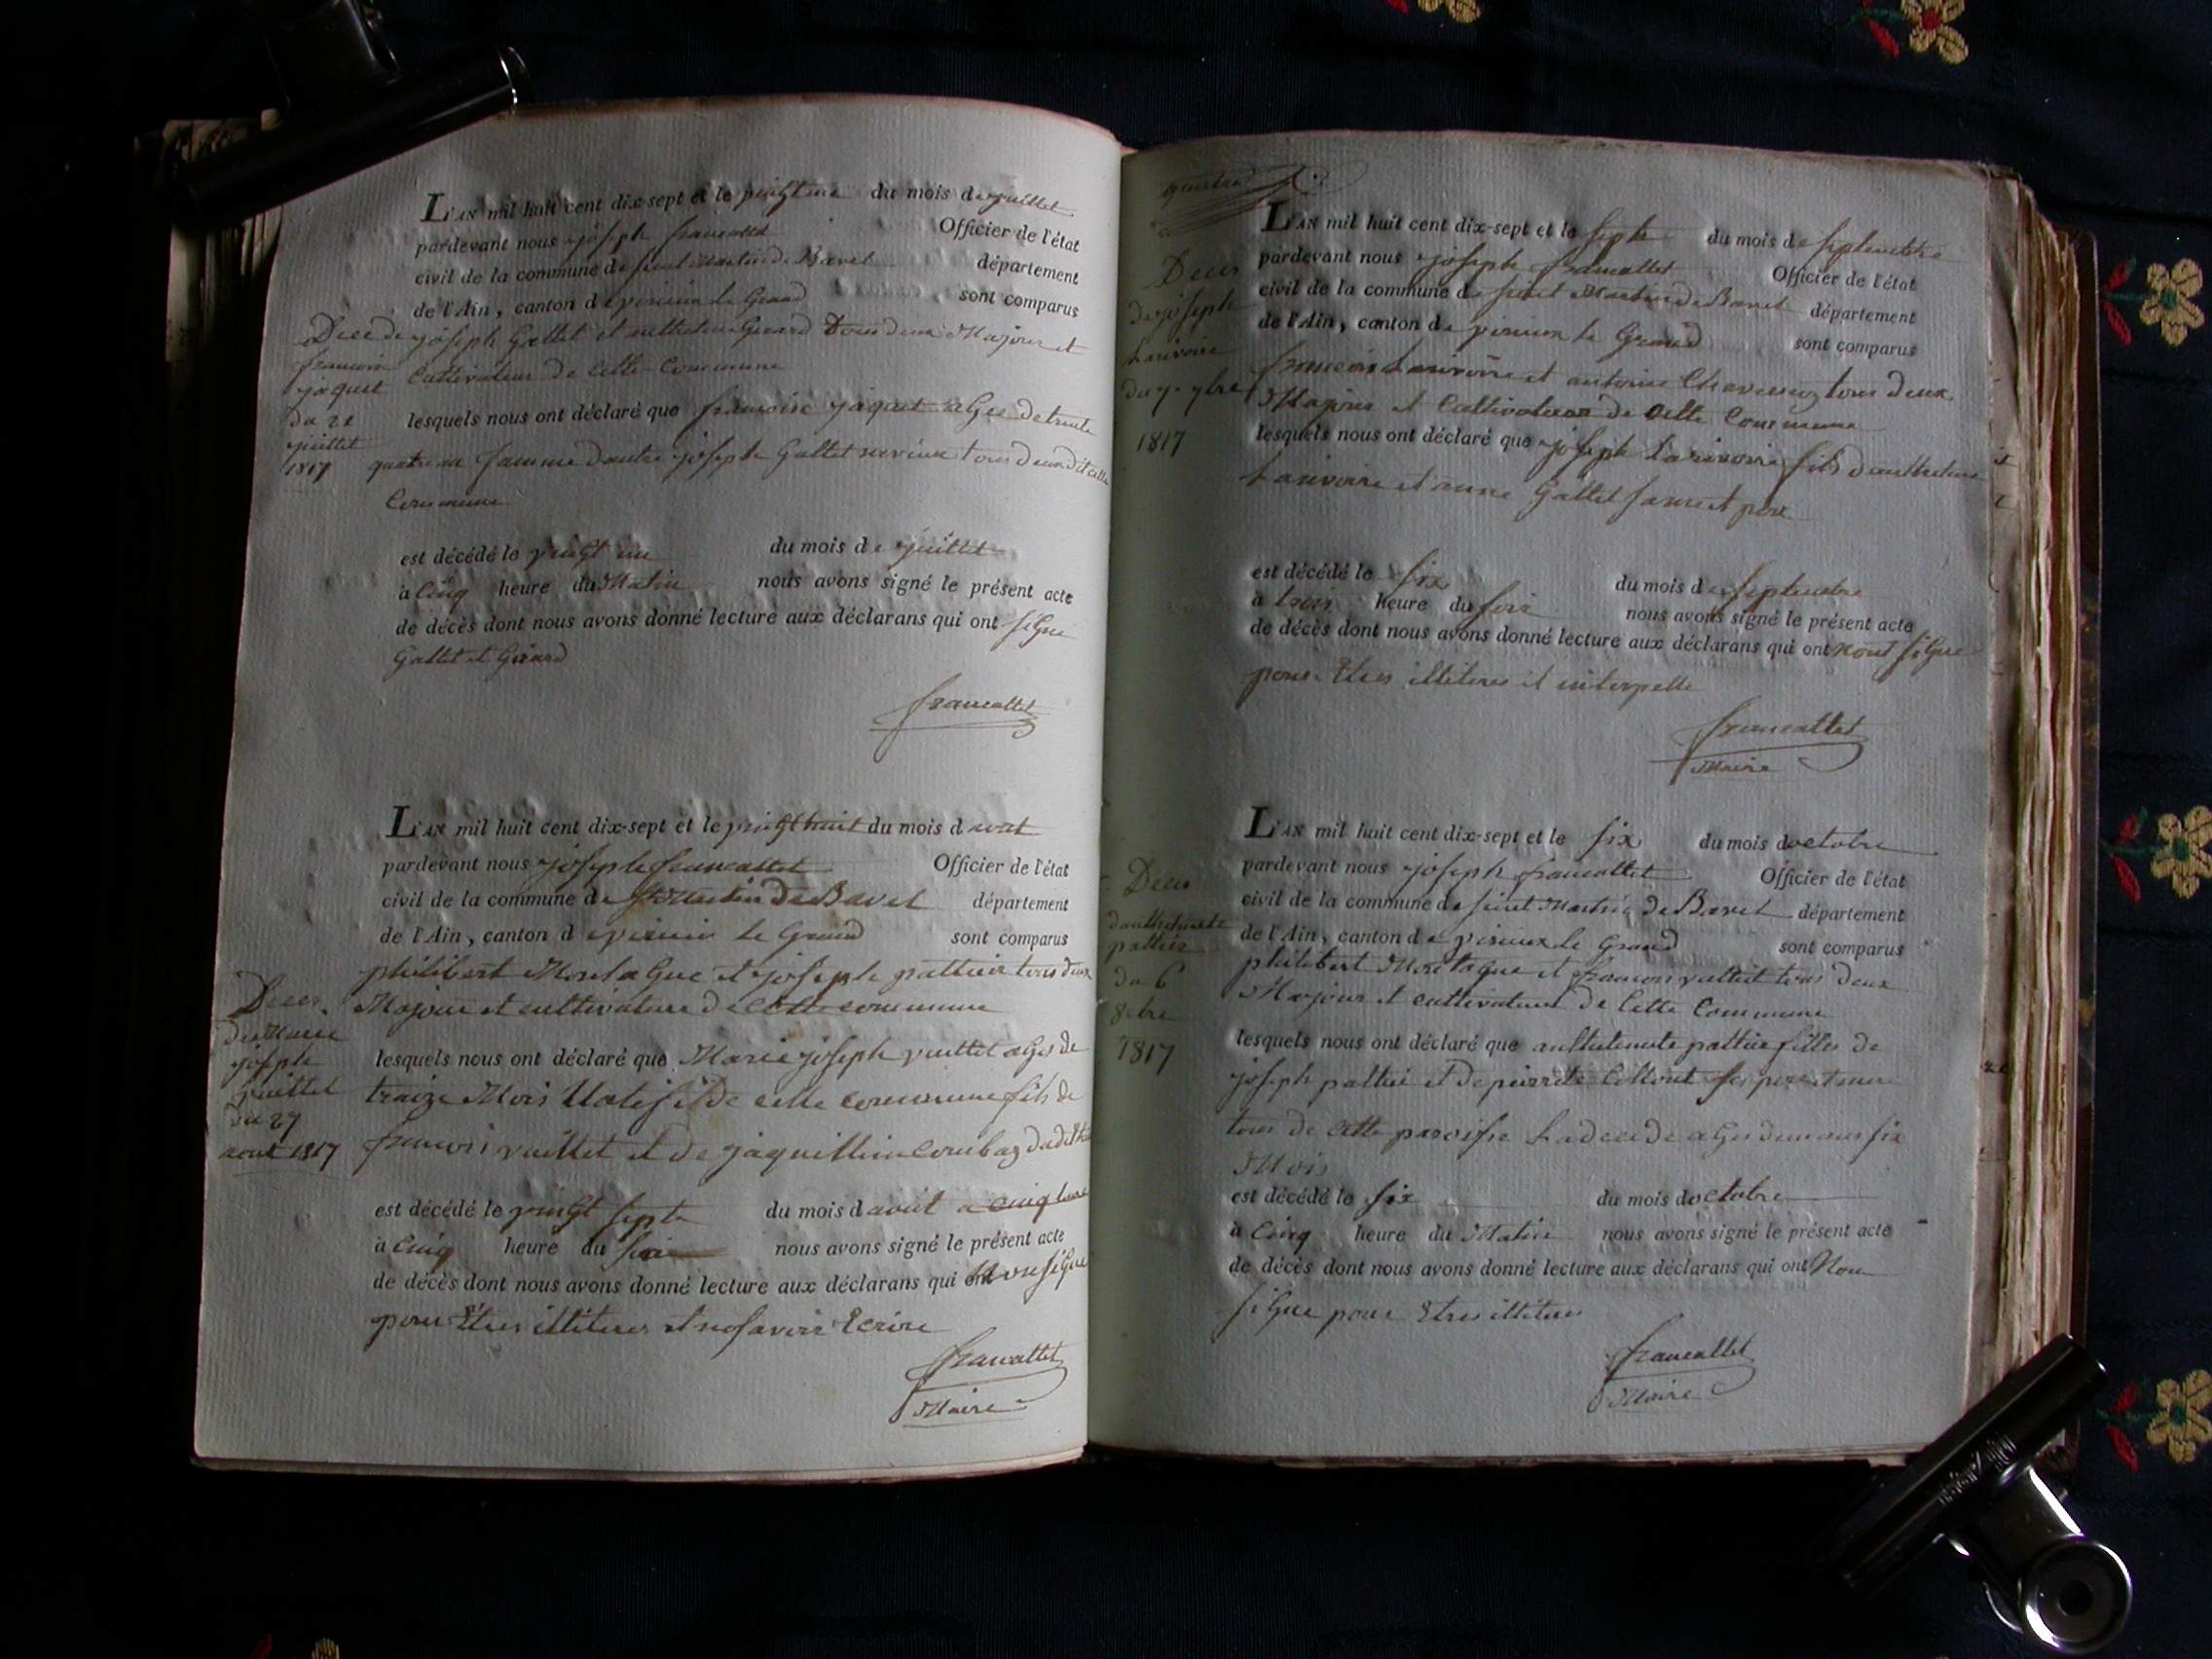 L'AN mil huit cent dix-sept et le vingt une du mois de juillet
pardevant nous joseph francallet Officier de l'état
civil de la commune de saint Martin de Bavel département
de l'Ain, canton de virieux le Grand sont comparus
joseph Gallet et Girard tous deux Majeurs et
Cultivateur de Cette Commune
lesquels nous ont déclaré que francoise jaquet agée de trente
quatre an famme dautre joseph Gallet tous deux cette
Commune
est décédé le vingt un du mois de juillet
à Cinq heure du Matin nous avons signé le présent acte
de décès dont nous avons donné lecture aux déclarans qui ont signe
Gallet et Girard
francallet
Deces de
francoise
jaquet
du 21
juillet
1817
L'AN mil huit cent dix-sept et le vingt huit du mois d aout
pardevant nous joseph francallet Officier de l'état
civil de la commune de St Martin De Bavel département
de l'Ain, canton de virieu le Grand sont comparus
philibert Montagne et joseph pattier tous deux
Majeur et cultivateur de Cette commune
lesquels nous ont déclaré que Marie joseph vuillet ages de
traize Mois de cette commune fils de
francois vuillet et de jaquelline Combaz
est décédé le vingt septe du mois d août a cinq hure
à Cinq heure du soir nous avons signé le présent acte
de décès dont nous avons donné lecture aux déclarans qui ont Non signe
pour Etres illiteres et ne savoir Ecrire
francallet
Maire
Deces
de Marie
joseph
vuillet
du 27
aout 1817
L'AN mil huit cent dix-sept et le septe du mois de septembre
pardevant nous joseph francallet Officier de l'état
civil de la commune de saint Martin de Bavel département
de l'Ain, canton de virieux le Grand sont comparus
francois Larivoire et antoine tous deux
Majeurs et Cultivateur de Cette Commune
lesquels nous ont déclaré que joseph Larivoire fils danthelme
Larivoire et anne Gallet
est décédé le six du mois de septembre
à trois heure du soir nous avons signé le présent acte
de décès dont nous avons donné lecture aux déclarans qui ont nont signe
pour Etres illiteres et interpelle
francallet
Maire
Deces
de joseph
Larivoire
du 7 7bre
1817
L'AN mil huit cent dix-sept et le six du mois doctobre
pardevant nous joseph francallet Officier de l'état
civil de la commune de saint Martin de Bavel département
de l'Ain, canton de virieux le Grand sont comparus
philibert Montagne et francois vuillet tous deux
Majeur et cultivateur de Cette Commune
lesquels nous ont déclaré que anthelmete pattier filles de
joseph pattier et De peirrete ses pere et mere
tous de cette paroisse Ladecede ages deux ans six
Mois
est décédé le six du mois doctobre
à Cinq heure du Matin nous avons signé le présent acte
de décès dont nous avons donné lecture aux déclarans qui ont Non
signe pour Etres illiteres
francallet
Maire
Deces
danthelmete
pattier
du 6
8bre
1817